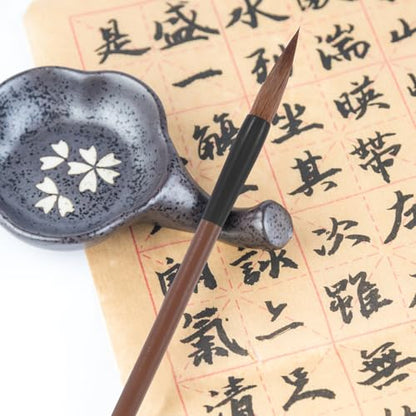 湍映帶左
水列坐其次雖無
盛一觴詠亦足
是朗氣清